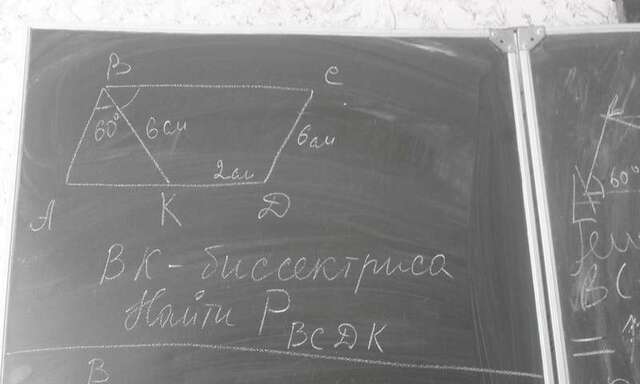 B C
60° 6 см 6 см
2 см
A K D
BK - биссектриса
Найти P BCDK
B
60°
BC
=